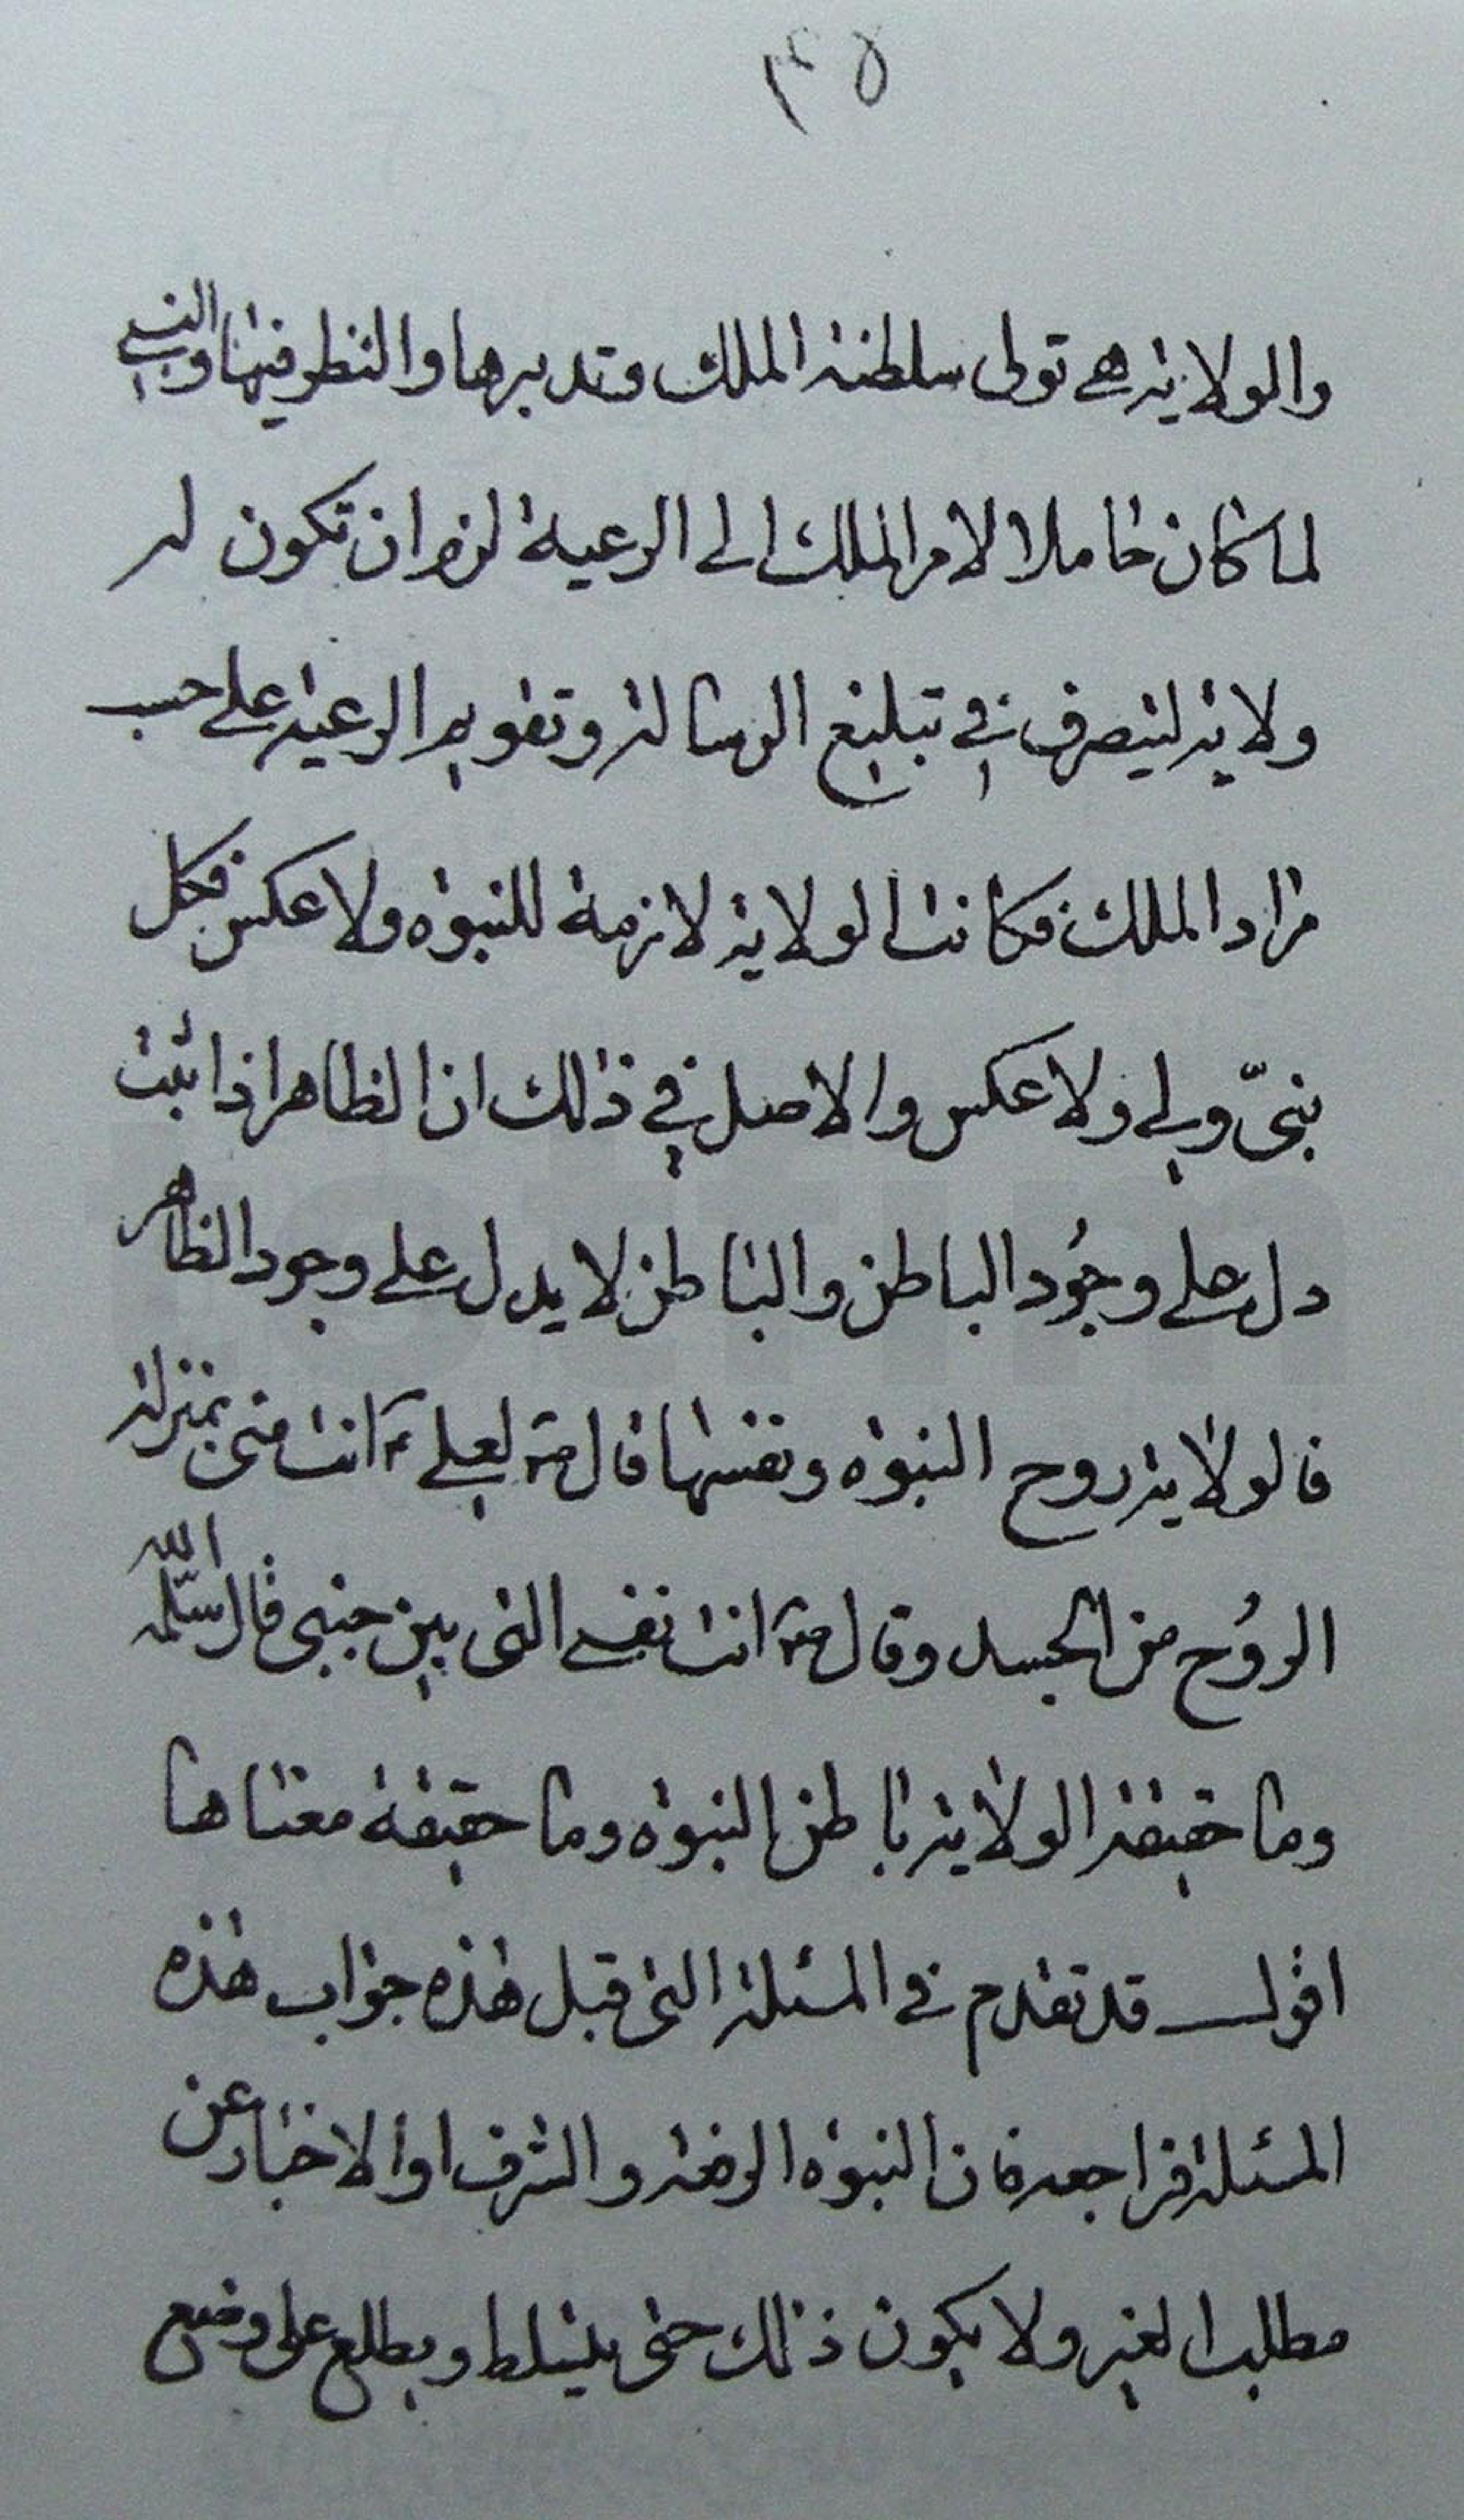 ٣٥
والولاية هي تولى سلطنة الملك وتدبيرها والنظر فيها والنبي
لما كان حاملا لامر الملك الى الرعية لزم ان تكون له
ولاية ليتصرف في تبليغ الرسالة وتقويم الرعية على حسب
مراد الملك فكانت الولاية لازمة للنبوة ولا عكس فكل
نبىّ ولي ولا عكس والاصل في ذلك ان الظاهر اذا ثبت
دل على وجُود الباطن والباطن لا يدل على وجود الظاهر
فالولاية روح النبوة ونفسها قال ص لعلي ع انت منى بمنزلة
الروُح من الجسد وقال ص انت نفسي التى بين جنبى قال سلّمه الله
وما حقيقة الولاية باطن النبوة وما حقيقة معناها
اقول قد تقدم في المسئلة التى قبل هذه جواب هذه
المسئلة فراجعه فان النبوة الرفعة والشرف او الاخبار عن
مطلب الغير ولا يكون ذلك حتى يتسلط ويطلع على وضع